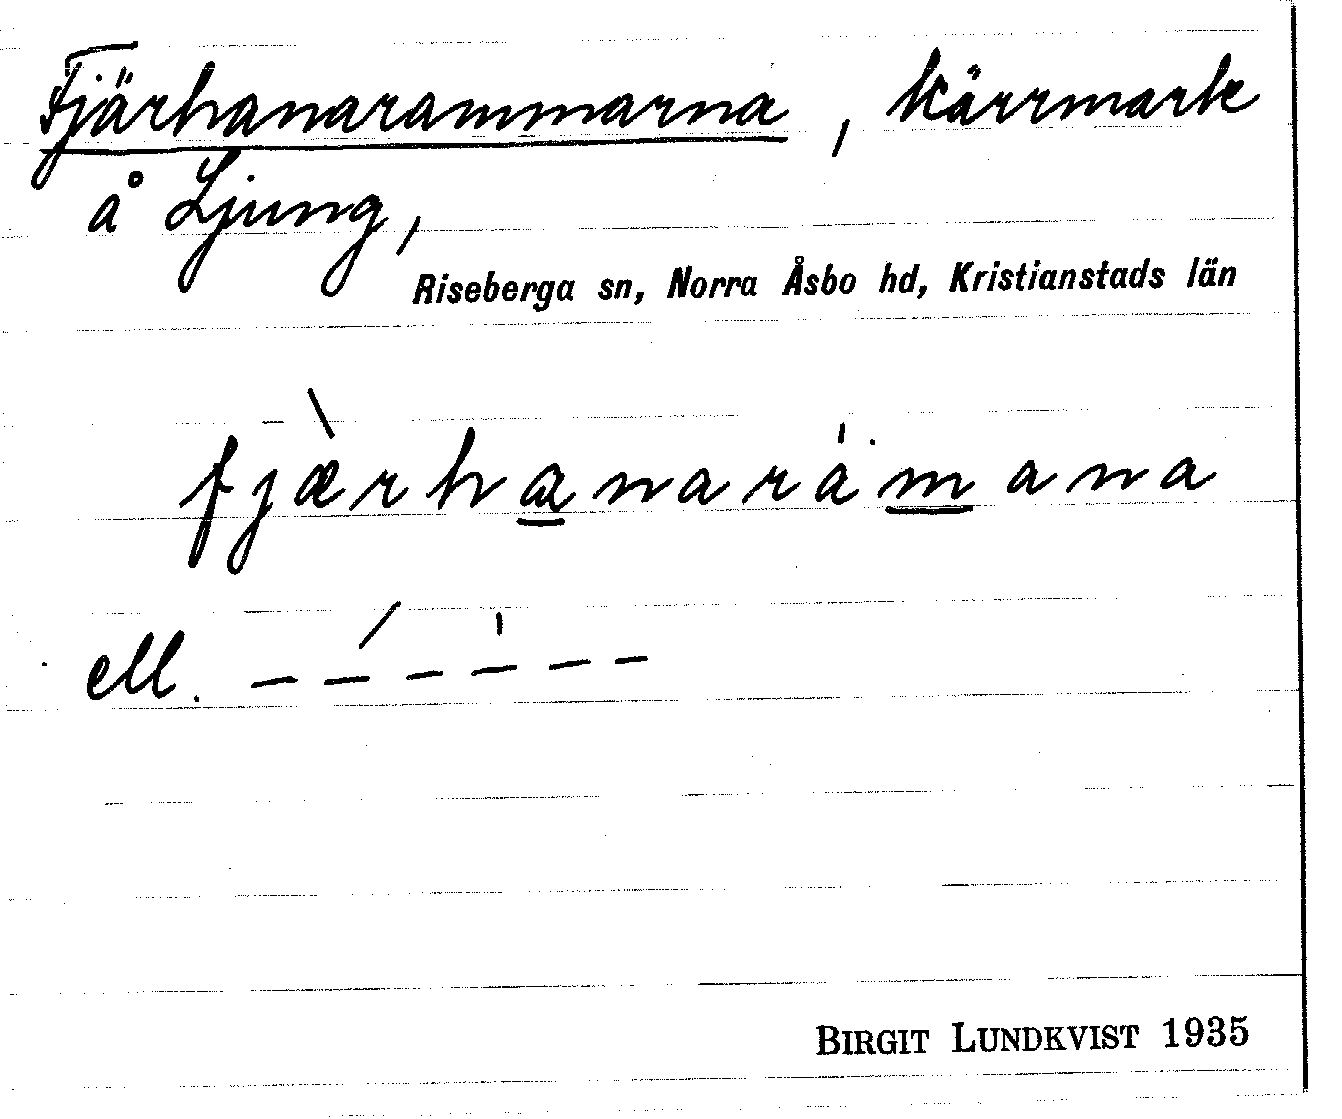 Fjärhanarammarna, kärrmark
å Ljung,
Riseberga sn, Norra Åsbo hd, Kristianstads län
fjæ̀rhanaràmana
ell. – – – – – –
BIRGIT LUNDKVIST 1935